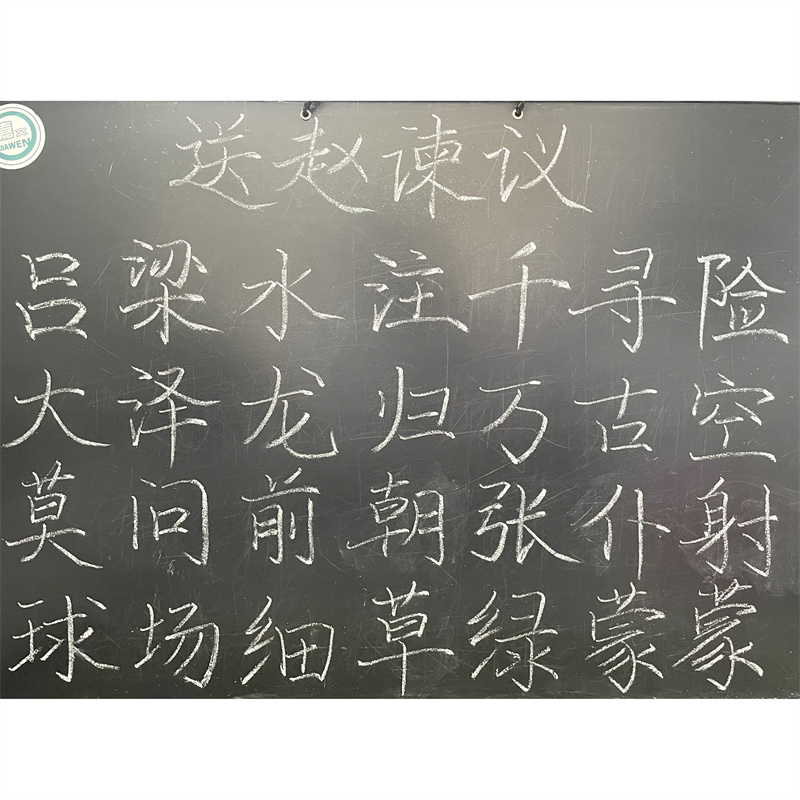 嘉文
JIAWEN
送赵谏议
吕梁水注千寻险
大泽龙归万古空
莫问前朝张仆射
球场细草绿蒙蒙